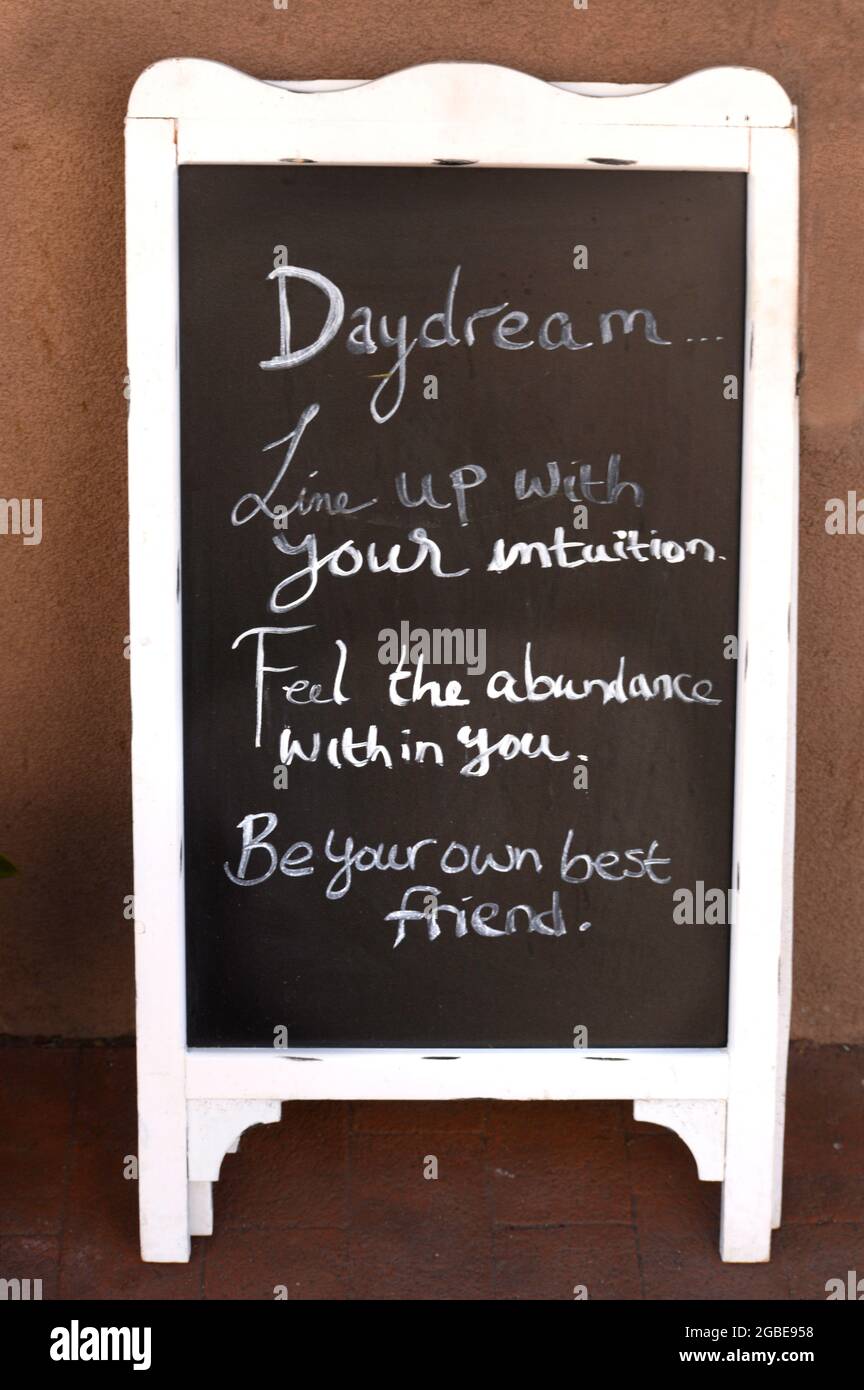 Daydream...
Line up with
your intuition.
Feel the abundance
within you.
Be your own best
friend.
alamy
Image ID: 2GBE958
www.alamy.com